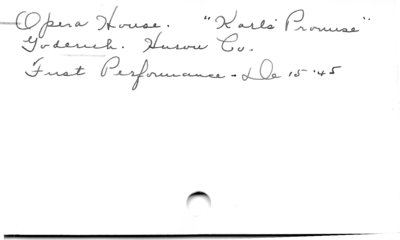 Opera House. "Karls' Promise"
Goderich. Huron Co.
First Performance - De 15 '45